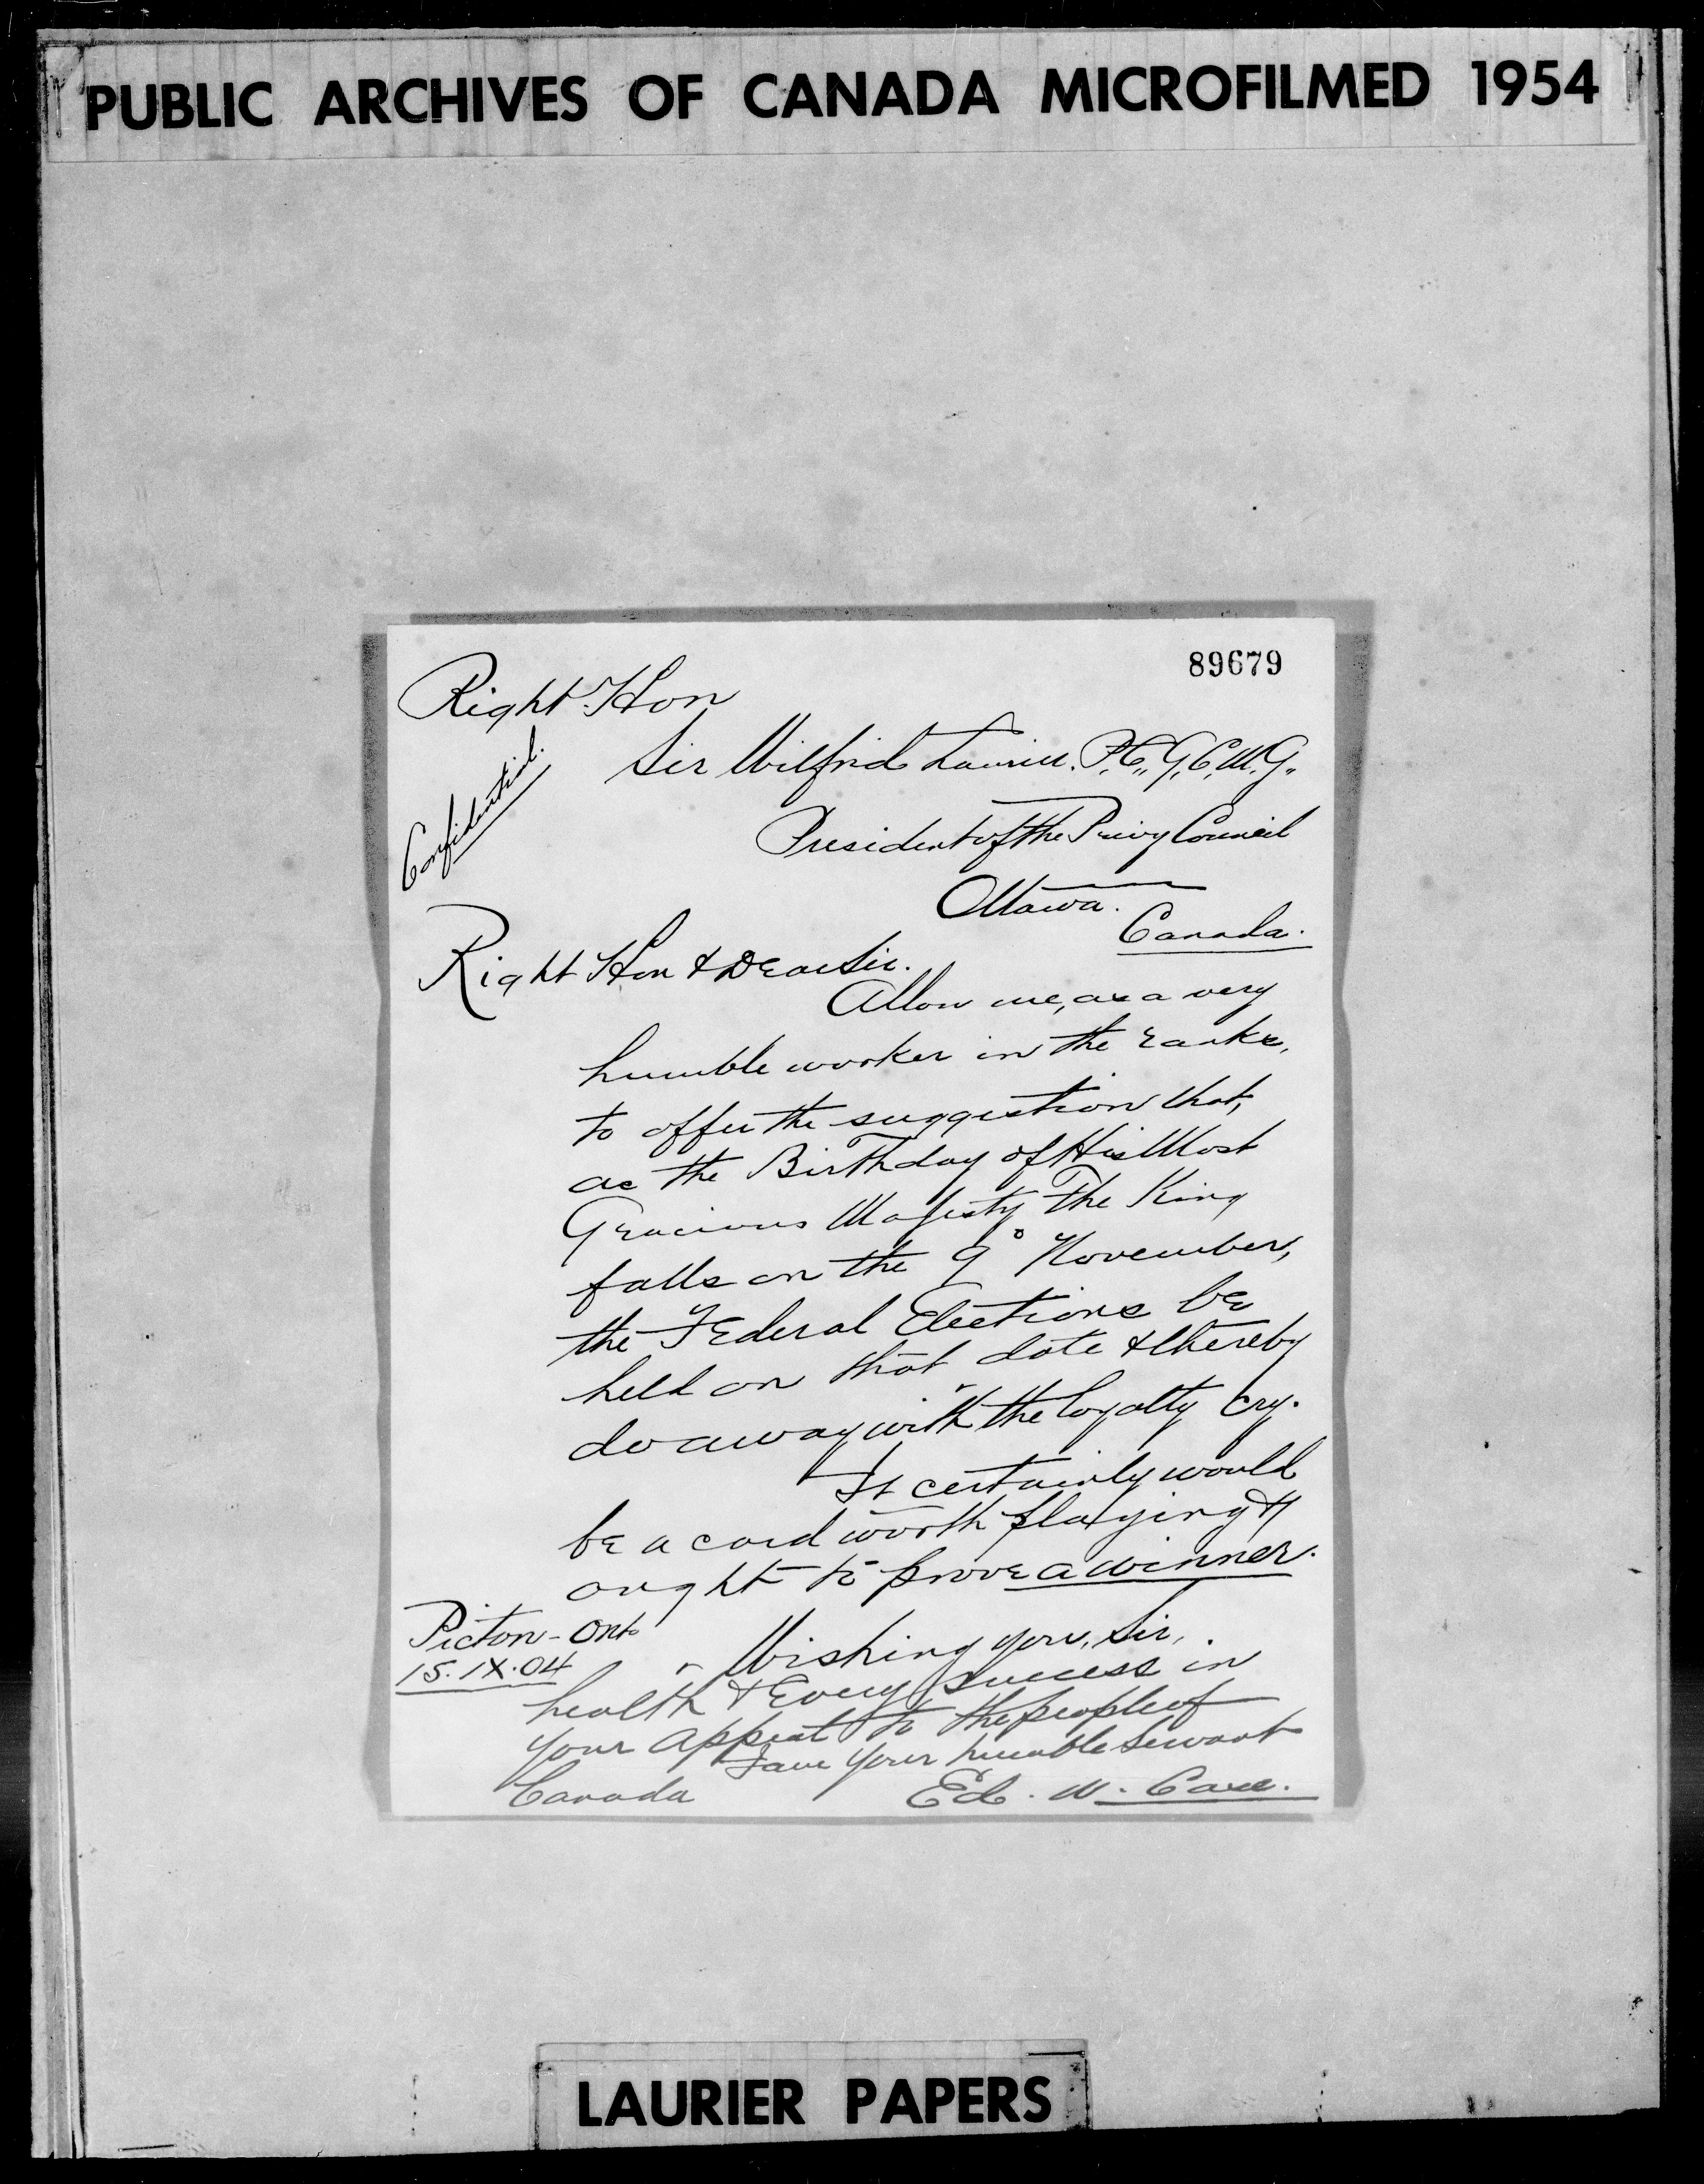 PUBLIC ARCHIVES OF CANADA MICROFILMED 1954
89679
Right Hon
Sir Wilfrid Laurier. P.C., G.C.M.G.,
Confidential.
President of the Privy Council
Ottawa.
Canada.
Right Hon & Dear Sir.
Allow me, as a very
humble worker in the ranks,
to offer the suggestion that,
as the Birthday of His Most
Gracious Majesty The King
falls on the 9° November,
the Federal Elections be
held on that date & thereby
do away with the loyalty cry.
It certainly would
be a card worth playing &
ought to prove a winner.
Picton - Ont
15.IX.04
Wishing you, Sir,
health & Every success in
your appeal to the people of
Canada
I am your humble servant
Ed. W.
LAURIER PAPERS